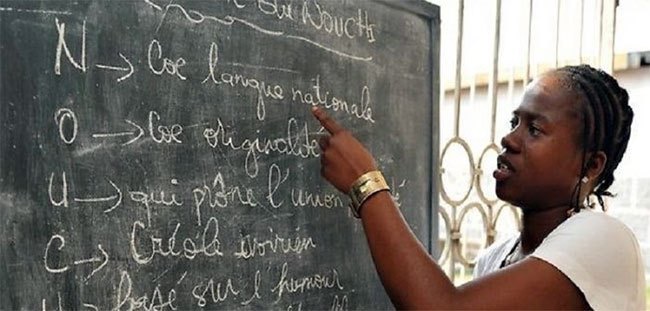 du NOUCHI
N → Coe langue nationale
O → Coe originalité
U → qui prône l'union
C → Créole ivoirien
H → basé sur l'humour